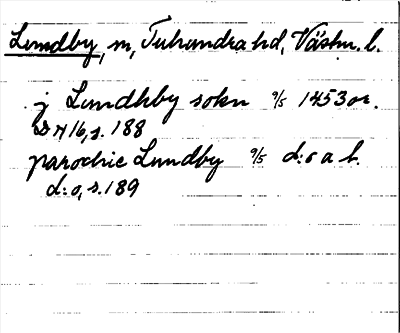 Lundby, sn, Tuhundra hd, Västm. l.
j Lundhby sokn 9/5 1453 or.
SH 16, s. 188
parochie Lundby 9/5 d:o a b.
d:o, s. 189